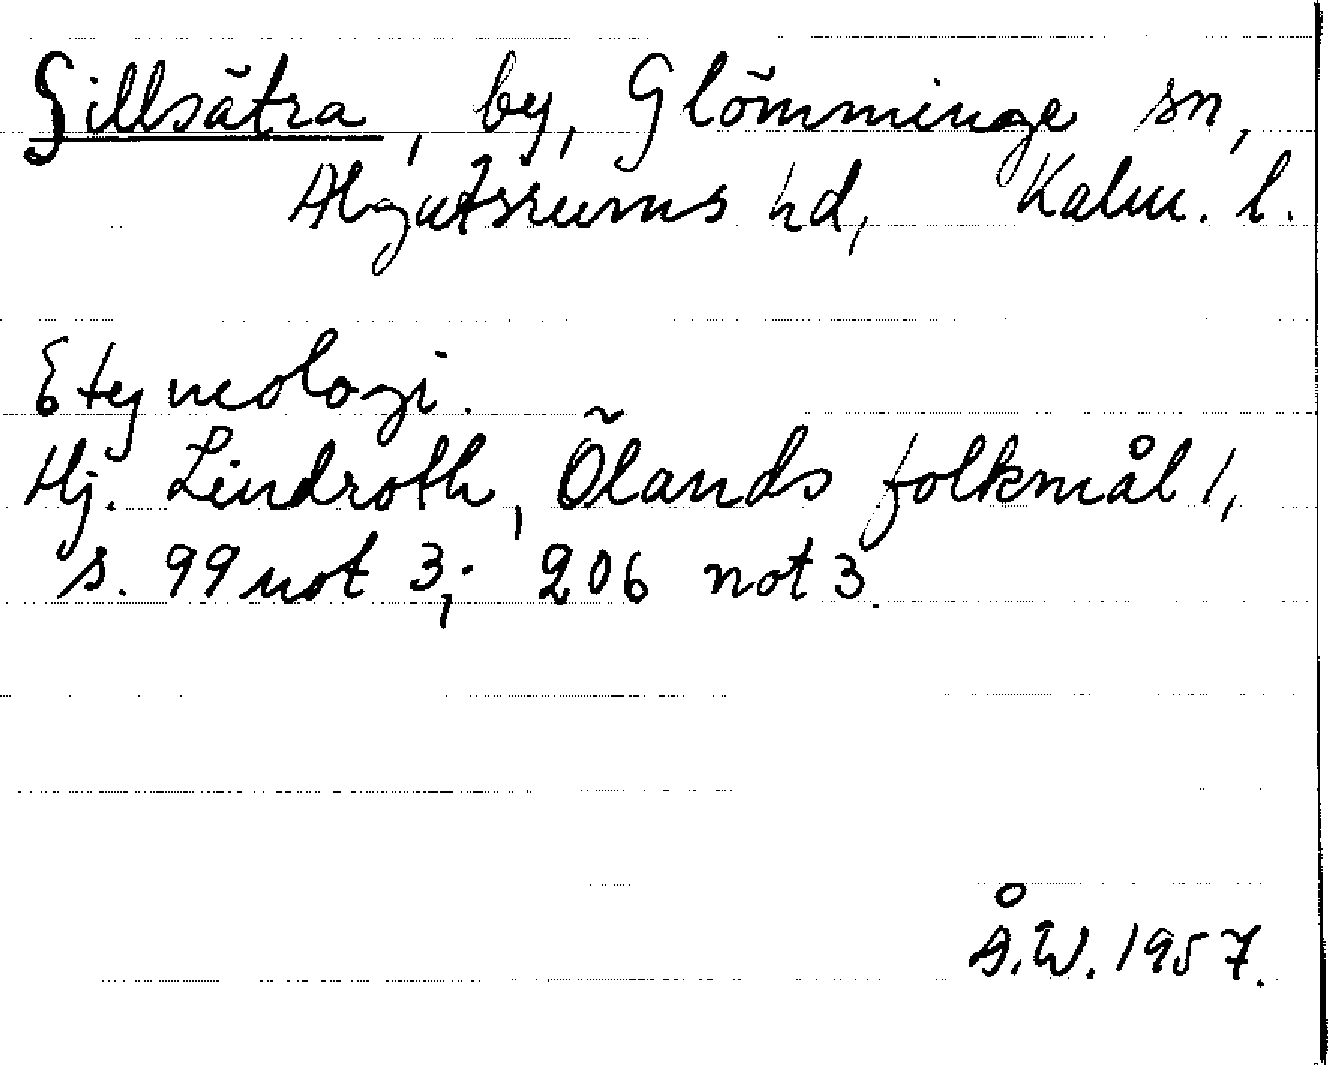 Gillsätra, by, Glömminge sn,
Algutsrums hd, Kalm. l.
Etymologi.
Hj. Lindroth, Ölands folkmål 1,
s. 99 not 3; 206 not 3.
Å.W. 1957.